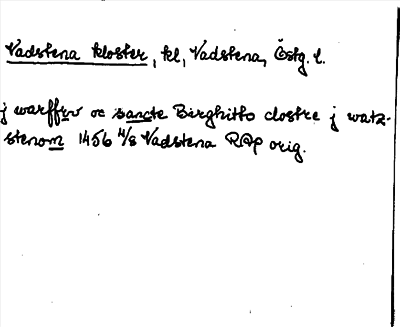 Vadstena kloster, kl, Vadstena, Östg. l.
j warffrv oc sancte Birghitto clostre j watz-
stenom 1456 4/8 Vadstena RAp orig.